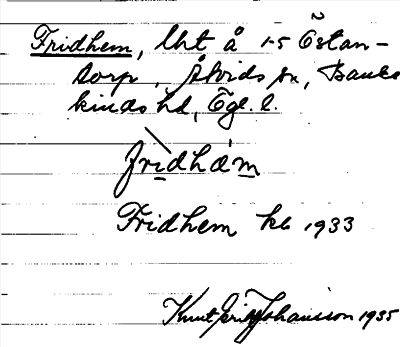 Fridhem, lht å 1-5 Östan-
torp, Åtvids sn, Banke
kinds hd, Ögl. l.
fridhäm
Fridhem kb 1933
Knut Johansson 1935